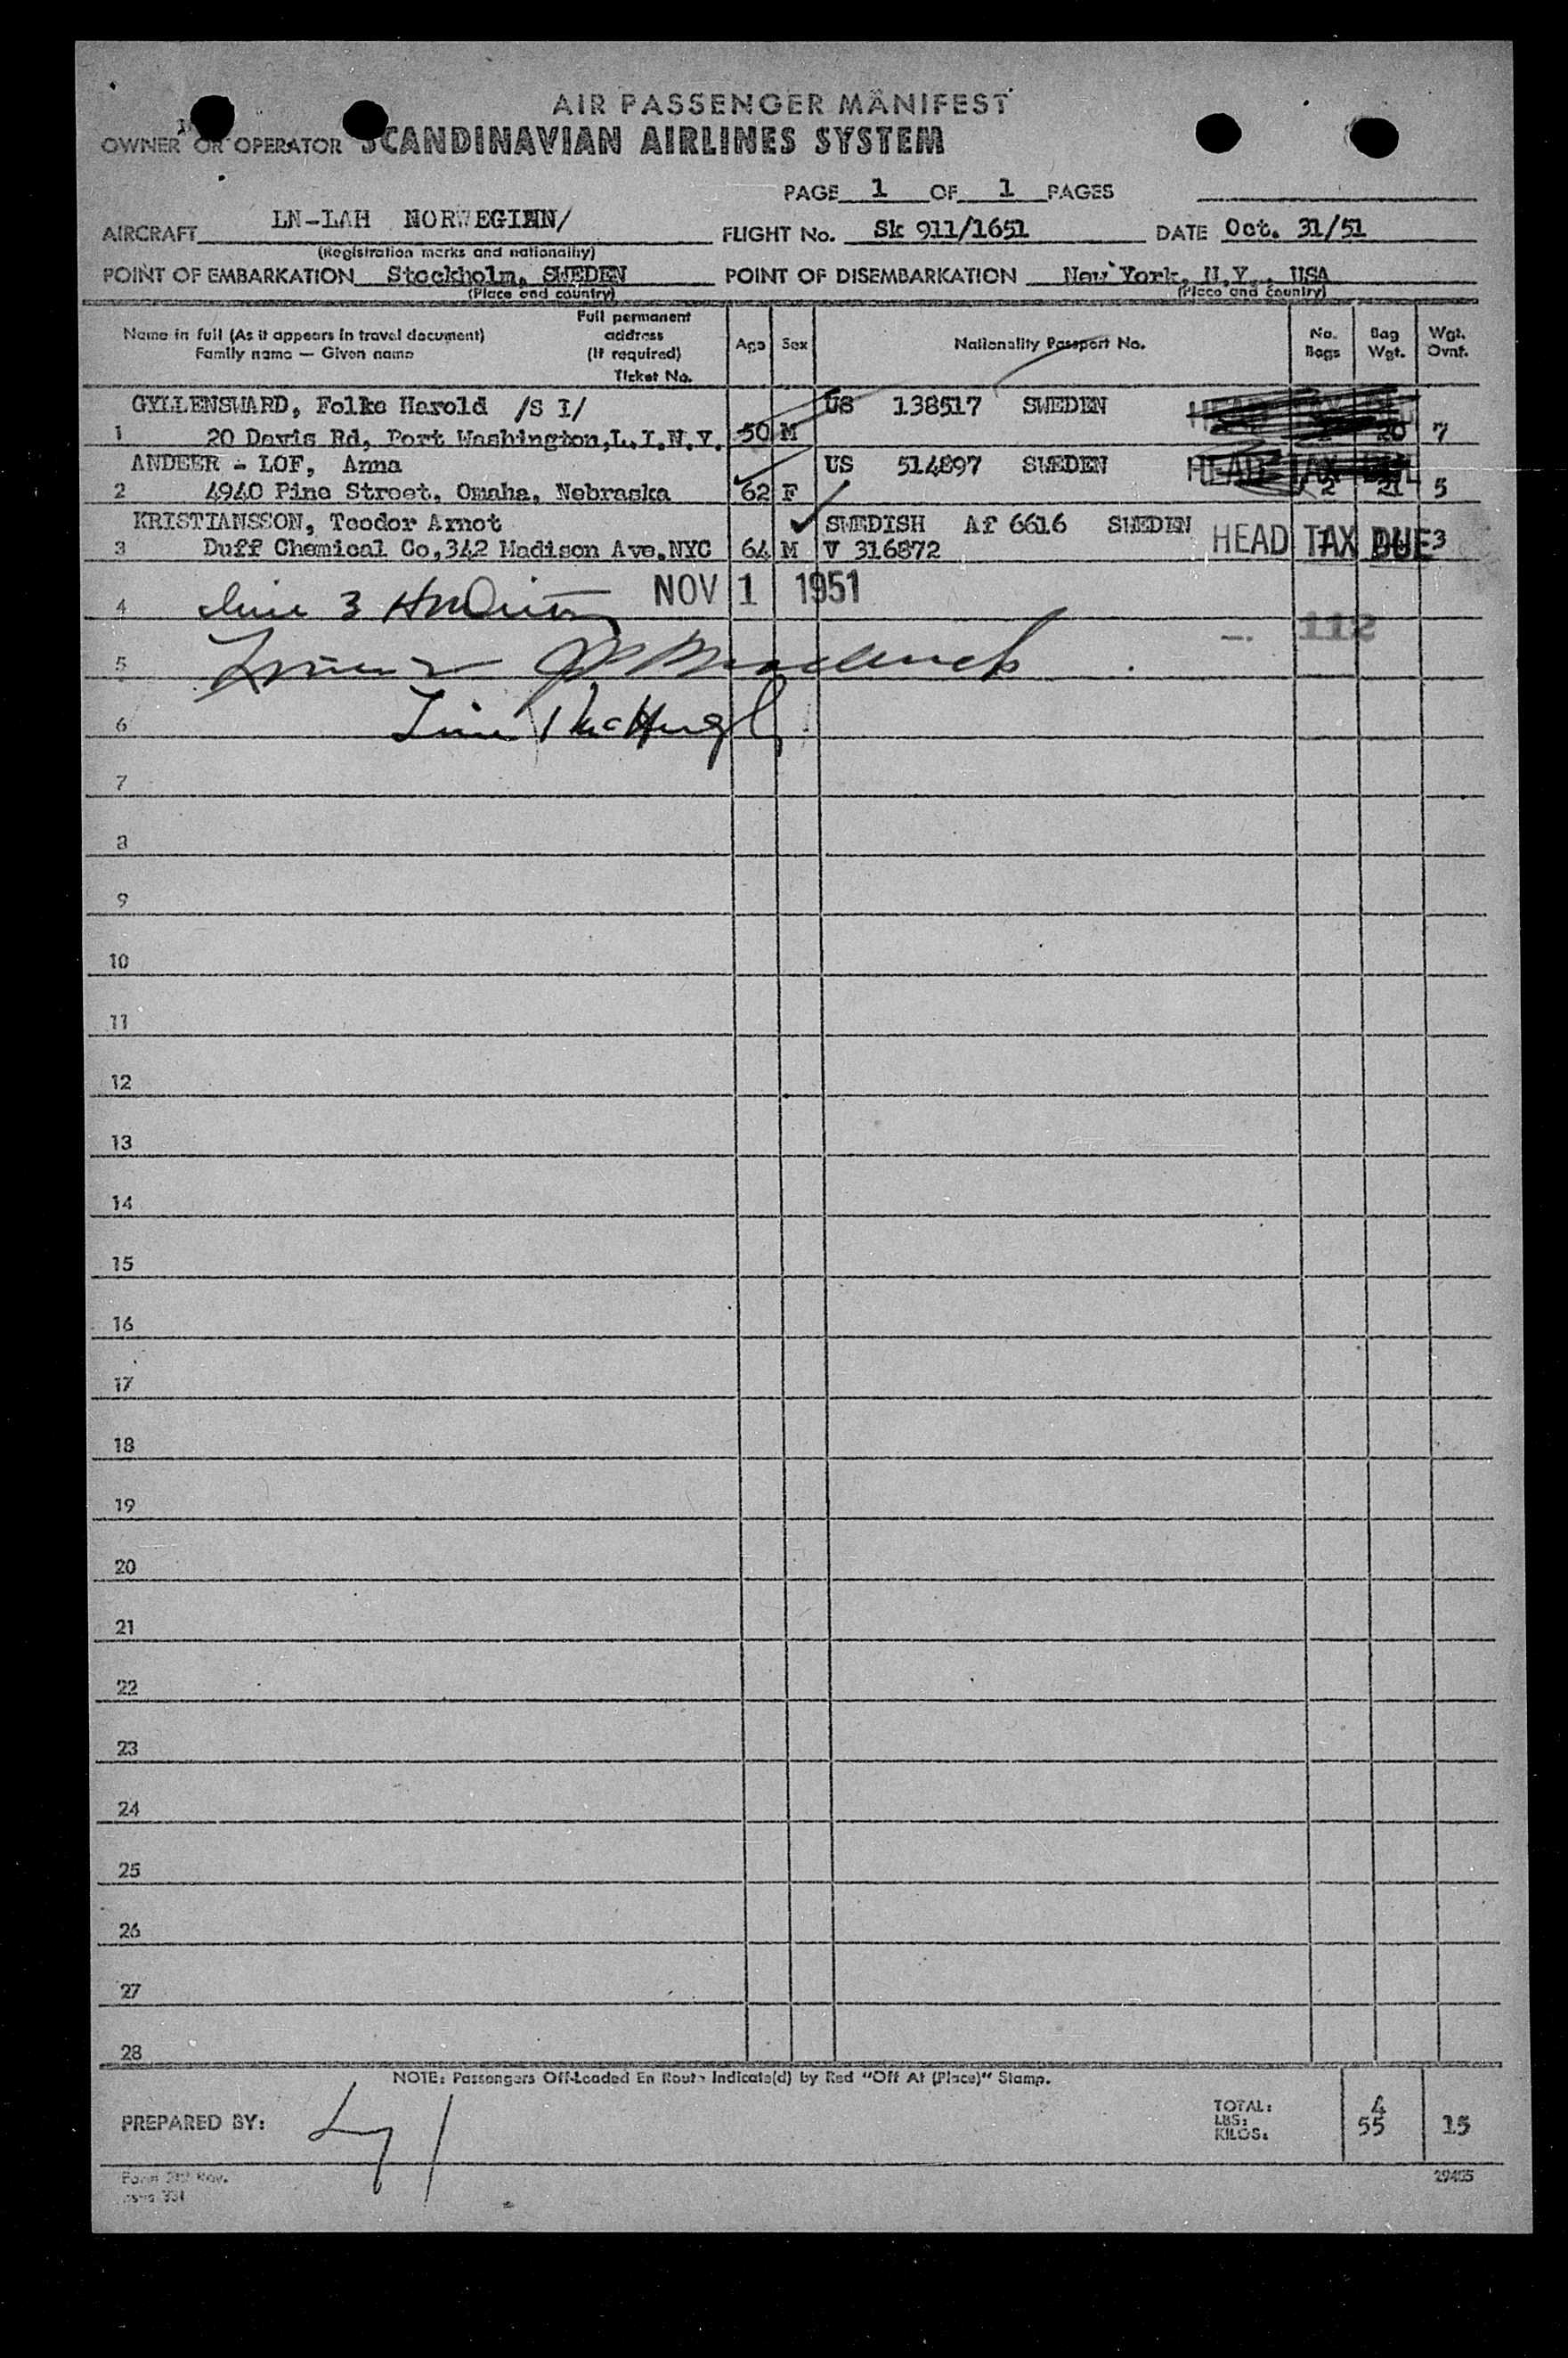 AIR PASSENGER MANIFEST
OWNER OR OPERATOR SCANDINAVIAN AIRLINES SYSTEM
PAGE 1 OF 1 PAGES
AIRCRAFT LN-LAH NORWEGIAN/ FLIGHT No. Sk 911/1651 DATE Oct. 31/51
(Registration marks and nationality)
POINT OF EMBARKATION Stockholm, SWEDEN POINT OF DISEMBARKATION New York, N.Y., USA
(Place and country) (Place and country)
Name in full (As it appears in travel document) Family name — Given name Full permanent address (If required) Ticket No. Age Sex Nationality Passport No. No. Bags Bag Wgt. Wgt. Ovnt.
GYLLENSWARD, Folke Harold /S I/ US 138517 SWEDEN HEAD TAX
1 20 Davis Rd, Port Washington, L.I.N.Y. 50 M 20 7
ANDEER - LOF, Anna US 514897 SWEDEN HEAD TAX
2 4940 Pine Street, Omaha, Nebraska 62 F 2 21 5
KRISTIANSSON, Teodor Arnot SWEDISH Af 6616 SWEDEN HEAD TAX DUE
3 Duff Chemical Co, 342 Madison Ave. NYC 64 M V 316872 3
NOV 1 1951
4 Line 3
112
5
6 Line 1 McHugh
7
8
9
10
11
12
13
14
15
16
17
18
19
20
21
22
23
24
25
26
27
28
NOTE: Passengers Off-Loaded En Route Indicate(d) by Red "Off At (Place)" Stamp.
PREPARED BY:
TOTAL: 4
LBS:
KILOS: 55 15
Form Rev.
29405